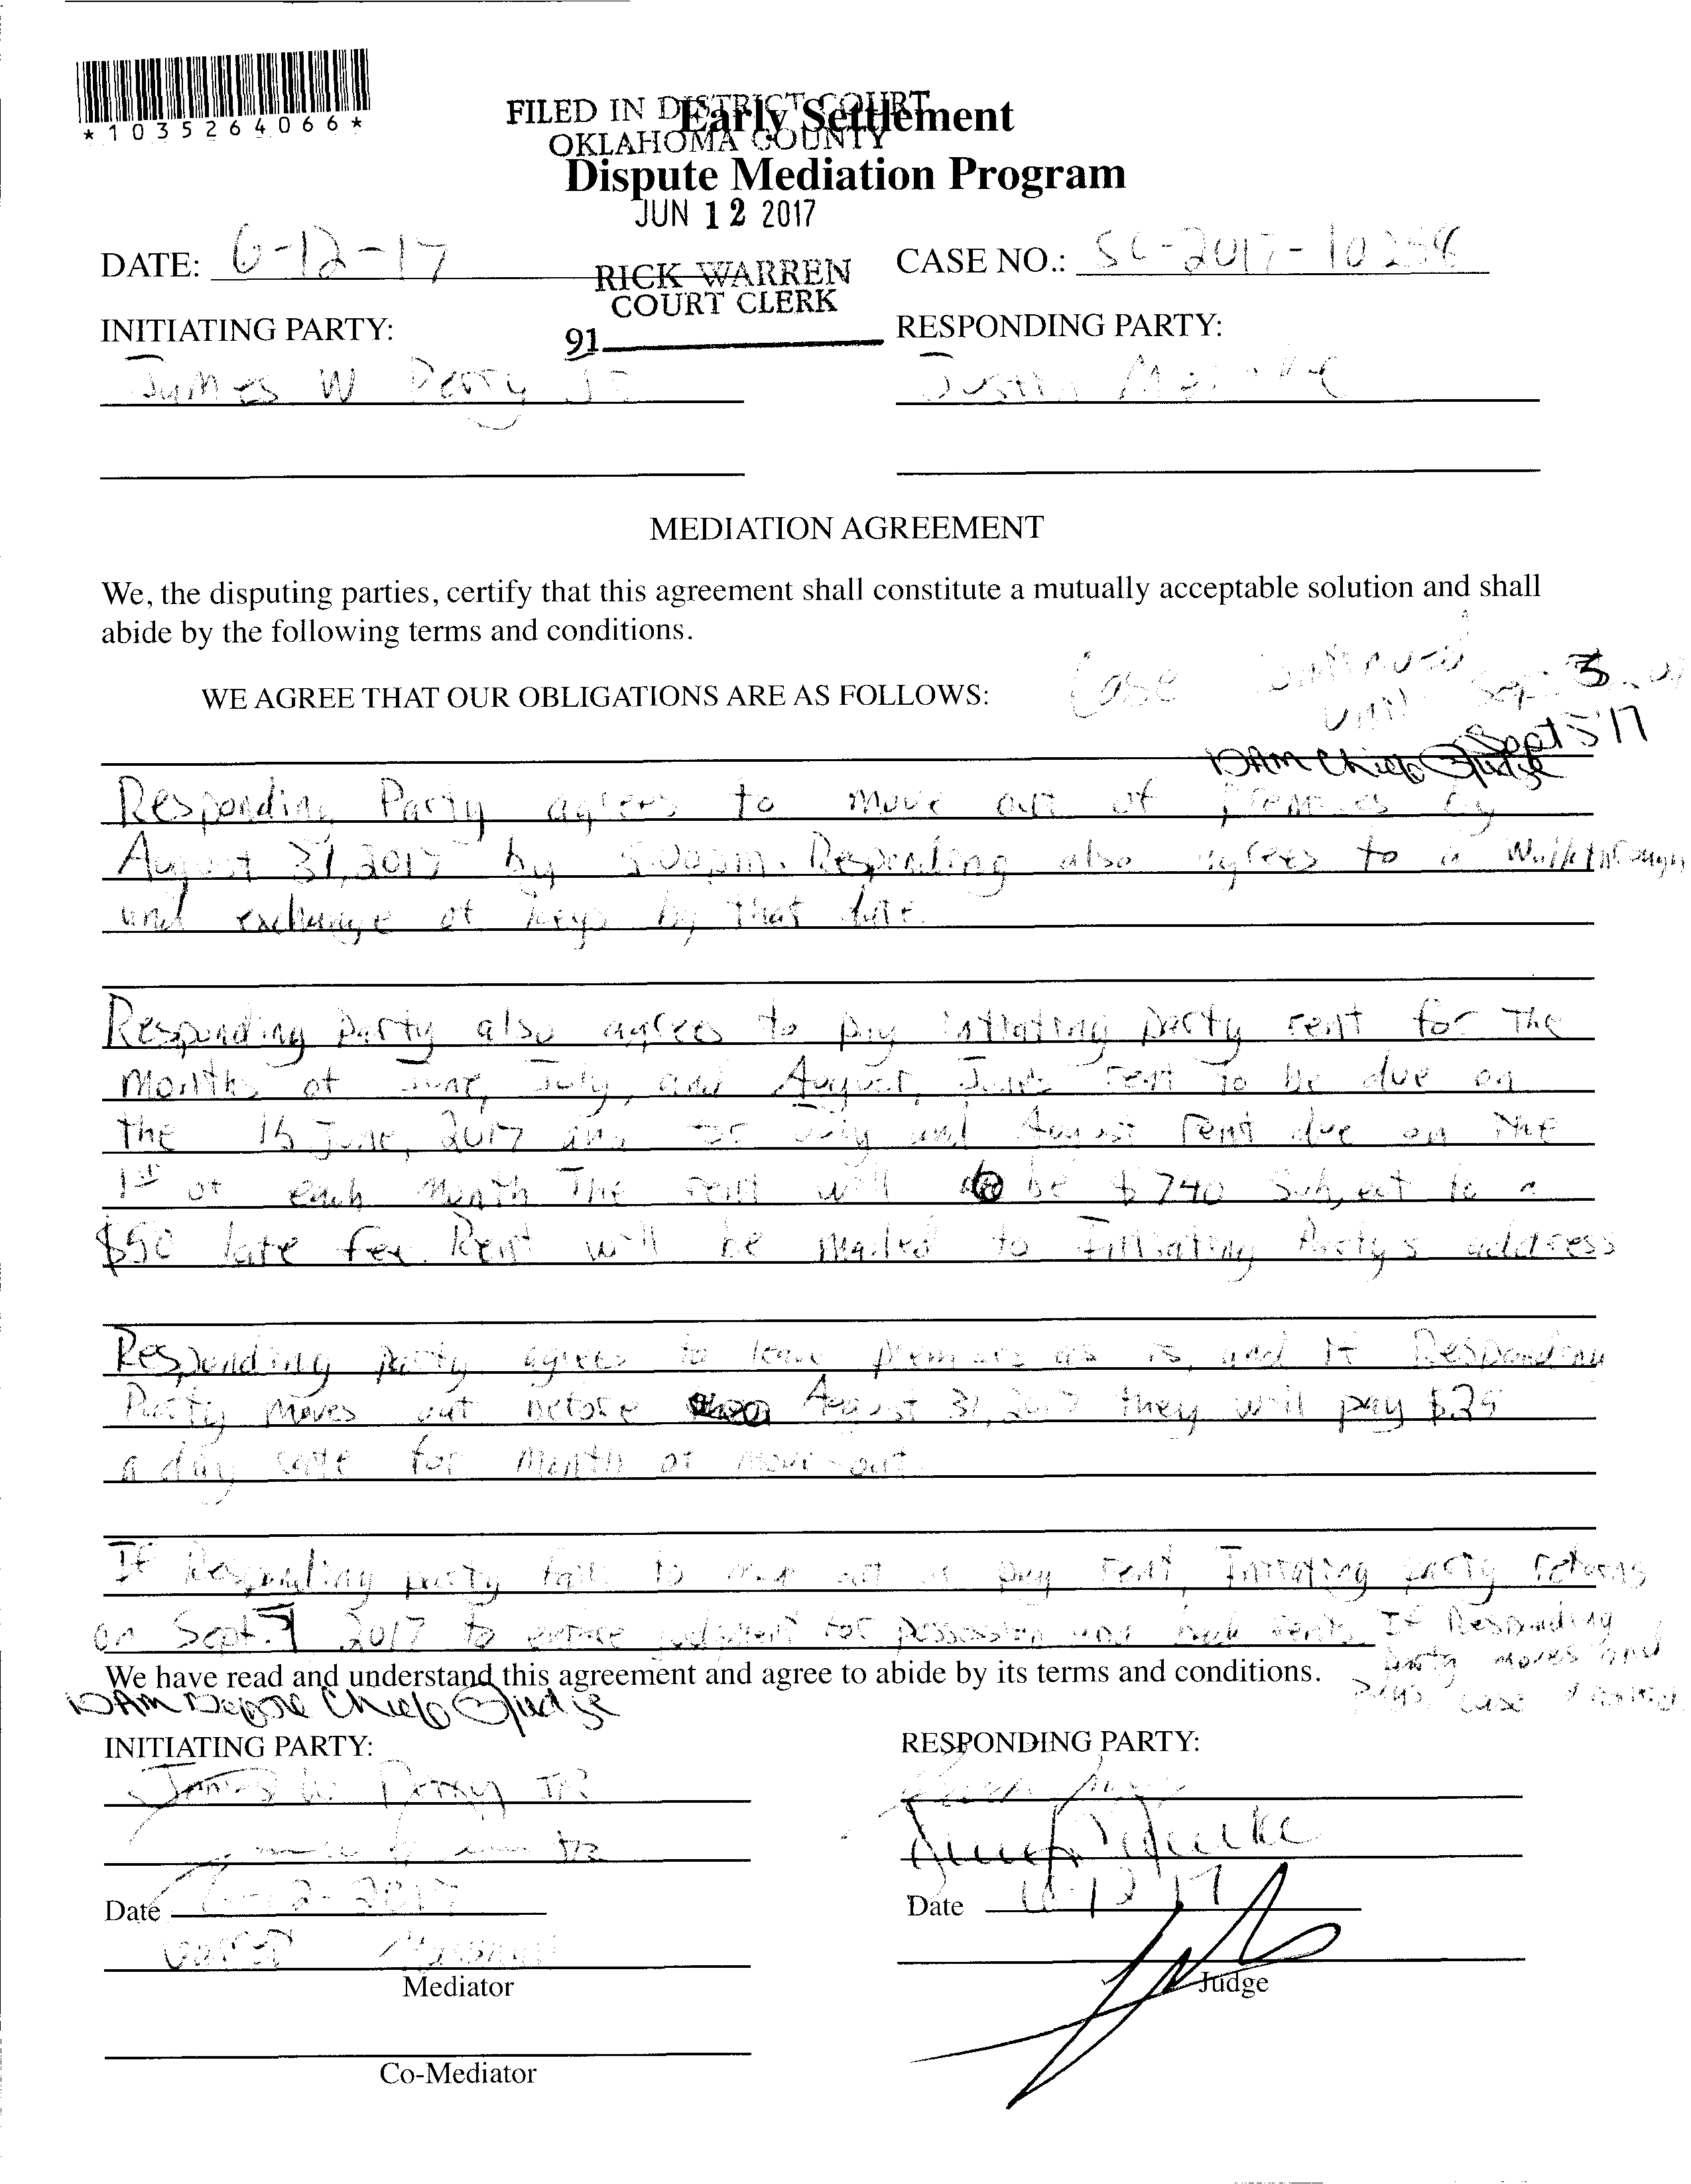 *1035264066*
FILED IN DISTRICT COURT
Early Settlement
OKLAHOMA COUNTY
Dispute Mediation Program
JUN 12 2017
DATE: 6-12-17
CASE NO.: SC-2017-10258
RICK WARREN
COURT CLERK
INITIATING PARTY:
91
RESPONDING PARTY:
James W Perry Jr
Justin
MEDIATION AGREEMENT
We, the disputing parties, certify that this agreement shall constitute a mutually acceptable solution and shall
abide by the following terms and conditions.
Case continued
WE AGREE THAT OUR OBLIGATIONS ARE AS FOLLOWS:
until Sept
Sept 5 '17
10 AM Chief Judge
Responding Party agrees to move out of premises by
August 31, 2017 by 5:00pm. Responding also agrees to a walkthrough
and exchange of keys by that date.
Responding party also agrees to pay initiating party rent for the
months of June, July, and August, June's rent to be due on
the 15 June, 2017 and for July and August rent due on the
1st of each month The rent will be $740 subject to a
$50 late fee. Rent will be mailed to Initiating Party's address
Responding party agrees to leave premises as is, and if Responding
Party moves out before August 31, 2017 they will pay $25
a day rate for month of move-out.
If Responding party fails to move out or pay rent, Initiating party returns
on Sept. 2017 to judgment for possession and back rents. If Responding
party moves and
We have read and understand this agreement and agree to abide by its terms and conditions.
pays case
10 AM Before Chief Judge
INITIATING PARTY:
RESPONDING PARTY:
James W Perry JR
JR
Date 6-12-2017
Date 6-12-17
Mediator
Judge
Co-Mediator